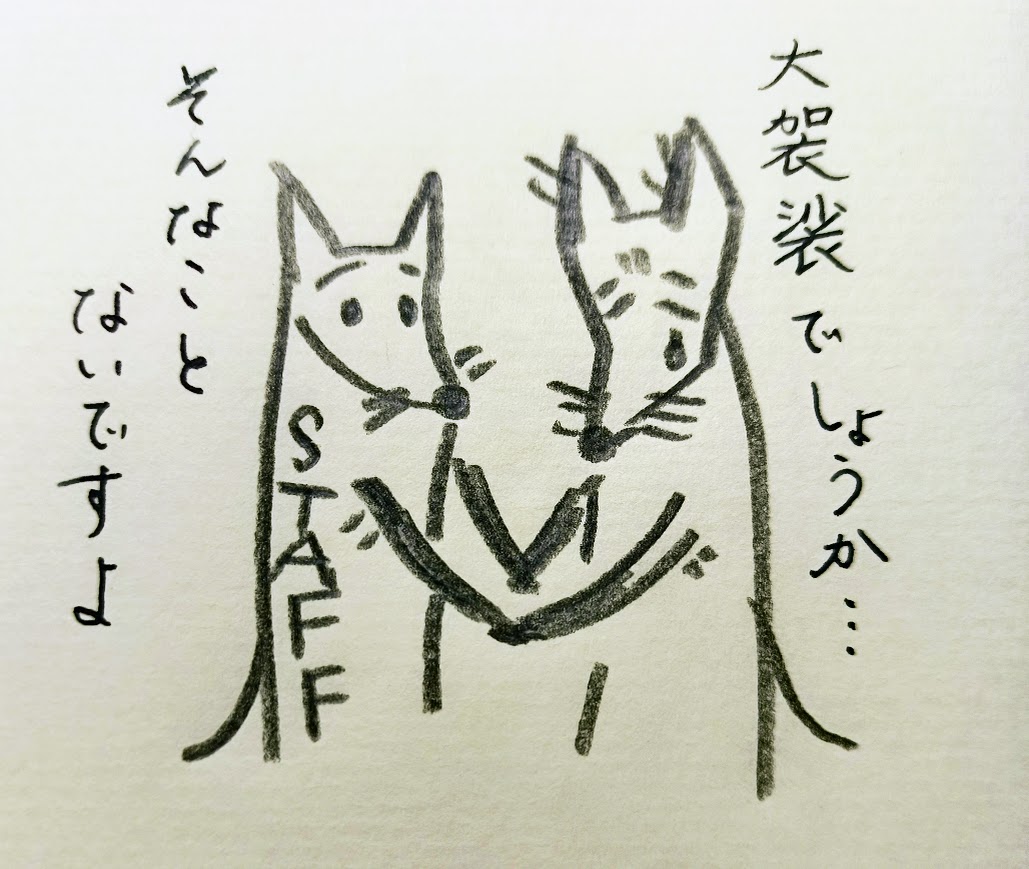 大袈裟でしょうか…
そんなこと
ないですよ
STAFF